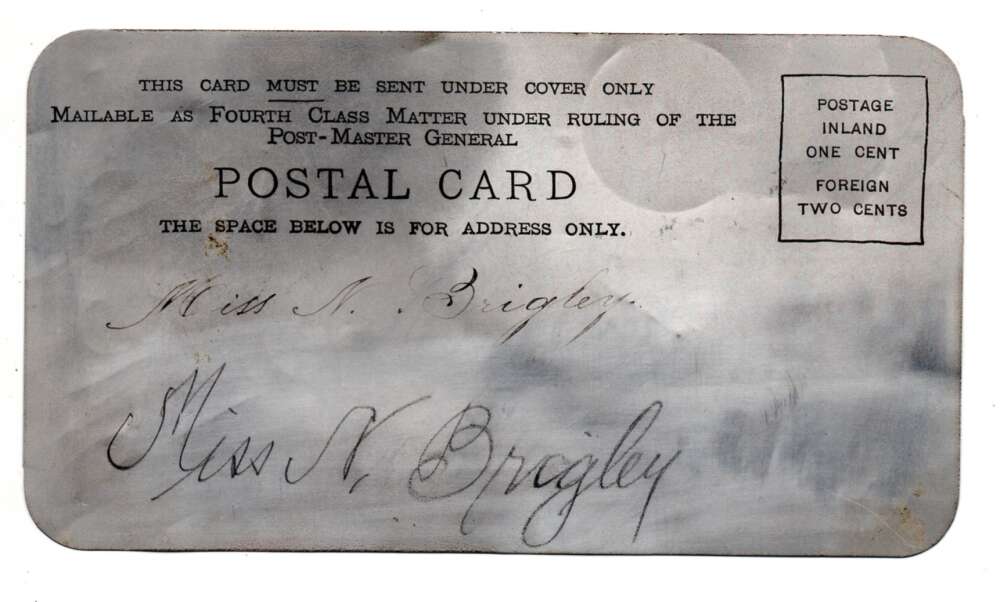 THIS CARD MUST BE SENT UNDER COVER ONLY
MAILABLE AS FOURTH CLASS MATTER UNDER RULING OF THE
POST-MASTER GENERAL
POSTAL CARD
THE SPACE BELOW IS FOR ADDRESS ONLY.
POSTAGE
INLAND
ONE CENT
FOREIGN
TWO CENTS
Miss N. Brigley.
Miss N. Brigley